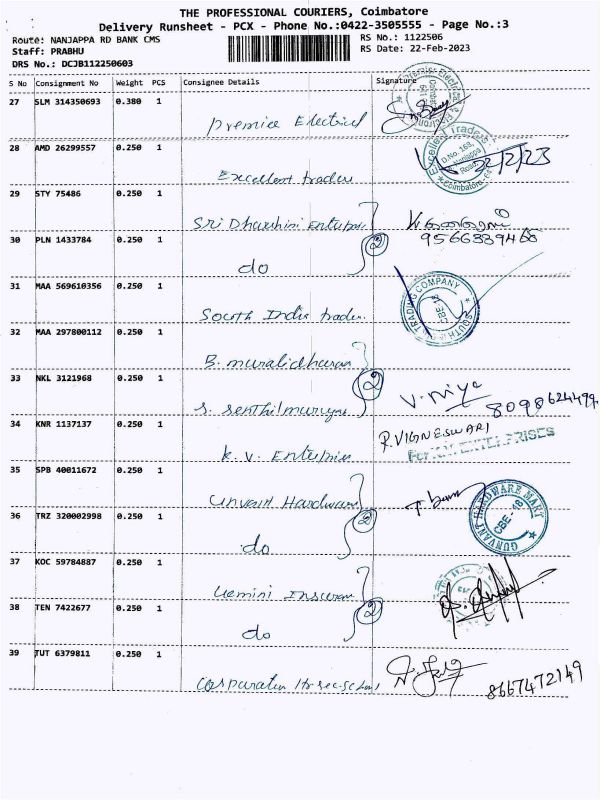 THE PROFESSIONAL COURIERS, Coimbatore
Delivery Runsheet - PCX - Phone No.:0422-3505555 - Page No.:3
Route: NANJAPPA RD BANK CMS
RS No.: 1122506
Staff: PRABHU
RS Date: 22-Feb-2023
DRS No.: DCJB112250603
S No Consignment No Weight PCS Consignee Details Signature
27 SLM 314350693 0.380 1
Premice Electricl
28 AMD 26299557 0.250 1
Excellent Traders
D.No. 168,
Nanjappa
Road
Coimbatore
22/2/23
Excellent trader
29 STY 75486 0.250 1
Sri Dharshini Enterpri
30 PLN 1433784 0.250 1
2
9566339466
do
31 MAA 569610356 0.250 1
TRADING COMPANY
SOUTH
CBE-18
South India trader
32 MAA 297800112 0.250 1
B. muralidharan
33 NKL 3121968 0.250 1
2
V. niya
8098624499
S. Senthilmurugn
34 KNR 1137137 0.250 1
R.VIGNESWARI
For K.V. ENTERPRISES
K. V. Enterprises
35 SPB 40011672 0.250 1
Gunvant Hardware
GUNVANT HARDWARE MART
CBE-18
36 TRZ 320002998 0.250 1
2
do
37 KOC 59784887 0.250 1
Gemini Insuran
38 TEN 7422677 0.250 1
2
do
39 TUT 6379811 0.250 1
Corporation Hr sec-school
8667472149